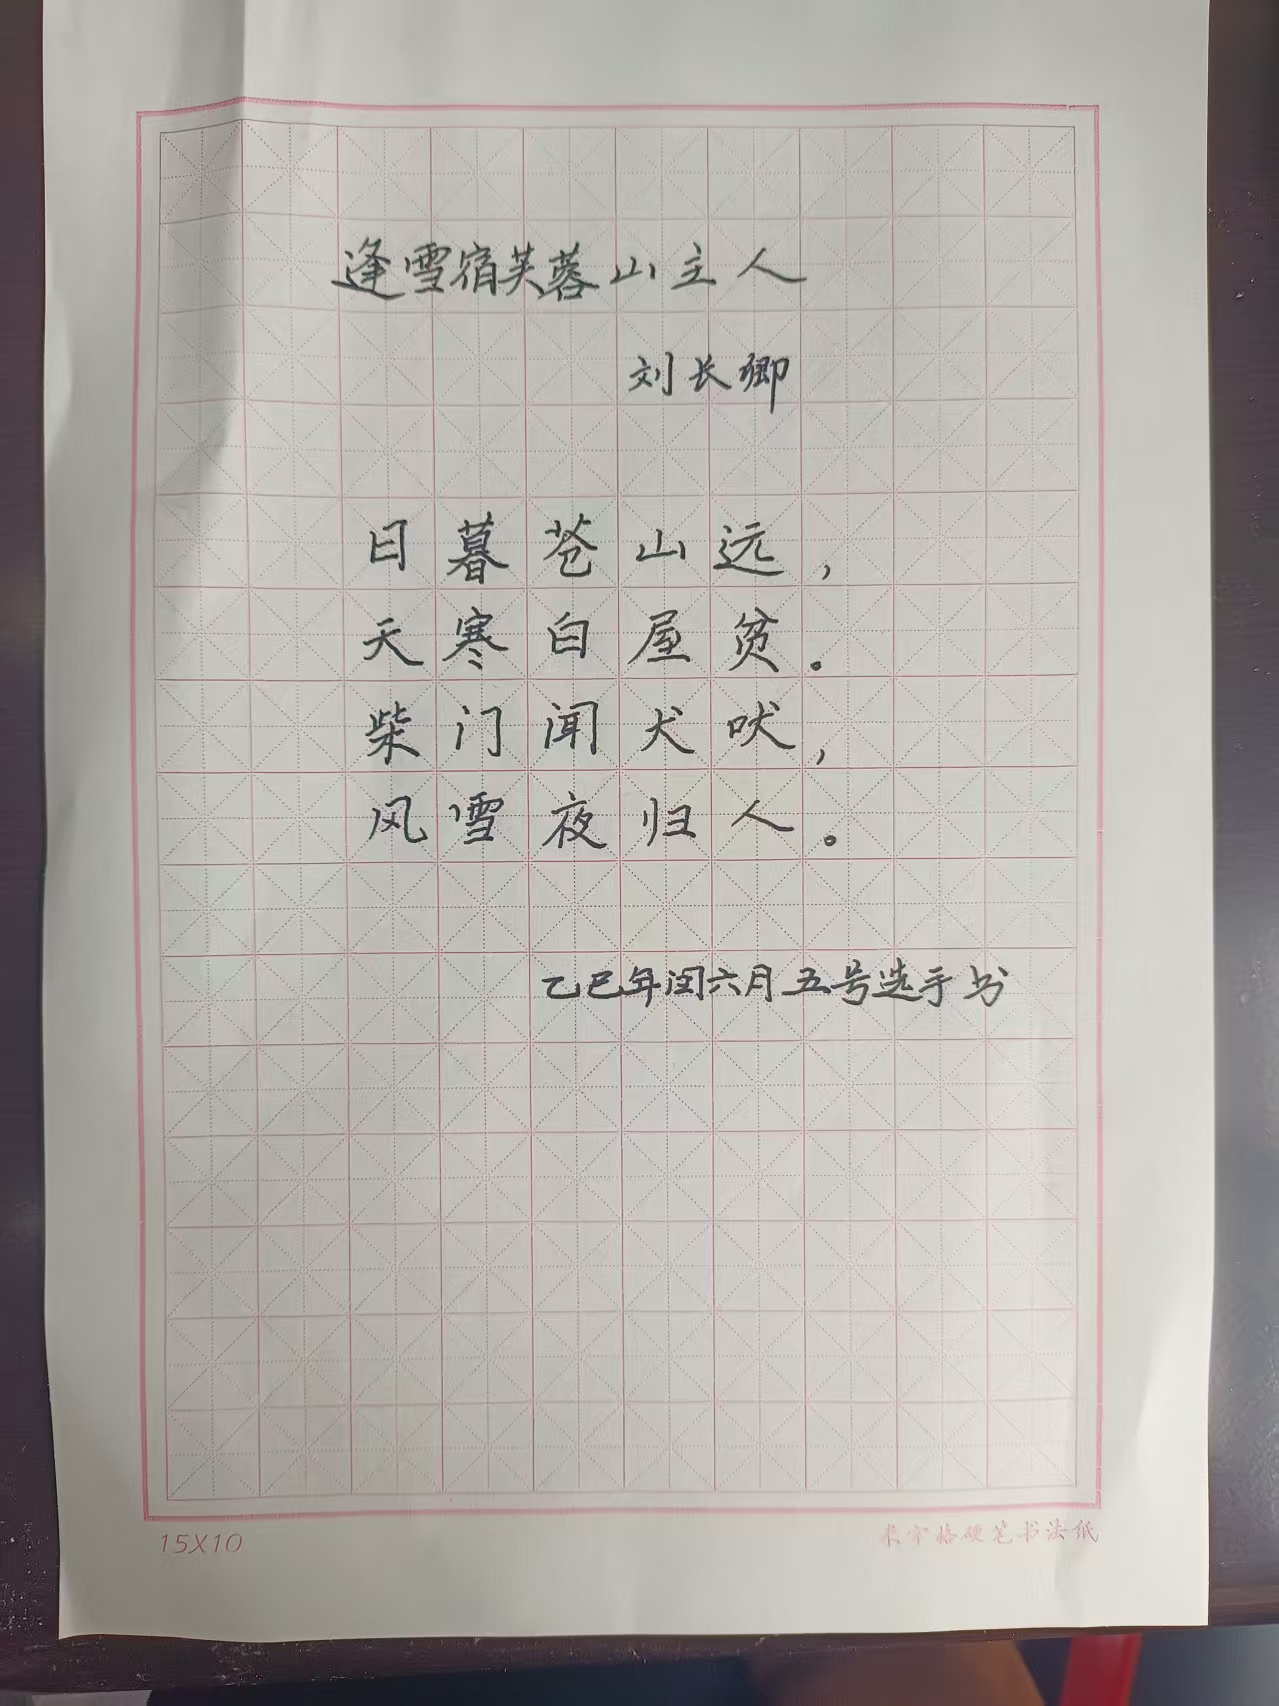 逢雪宿芙蓉山主人
刘长卿
日暮苍山远，
天寒白屋贫。
柴门闻犬吠，
风雪夜归人。
乙巳年闰六月五号选手书
15X10
米字格硬笔书法纸